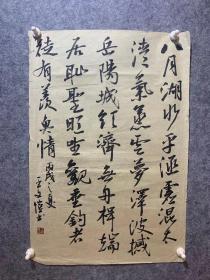 八月湖水平涵虚混太
清氣蒸雲夢澤波撼
岳陽城欲濟無舟楫端
居耻聖明坐觀垂釣者
徒有羨魚情 丙戌之夏